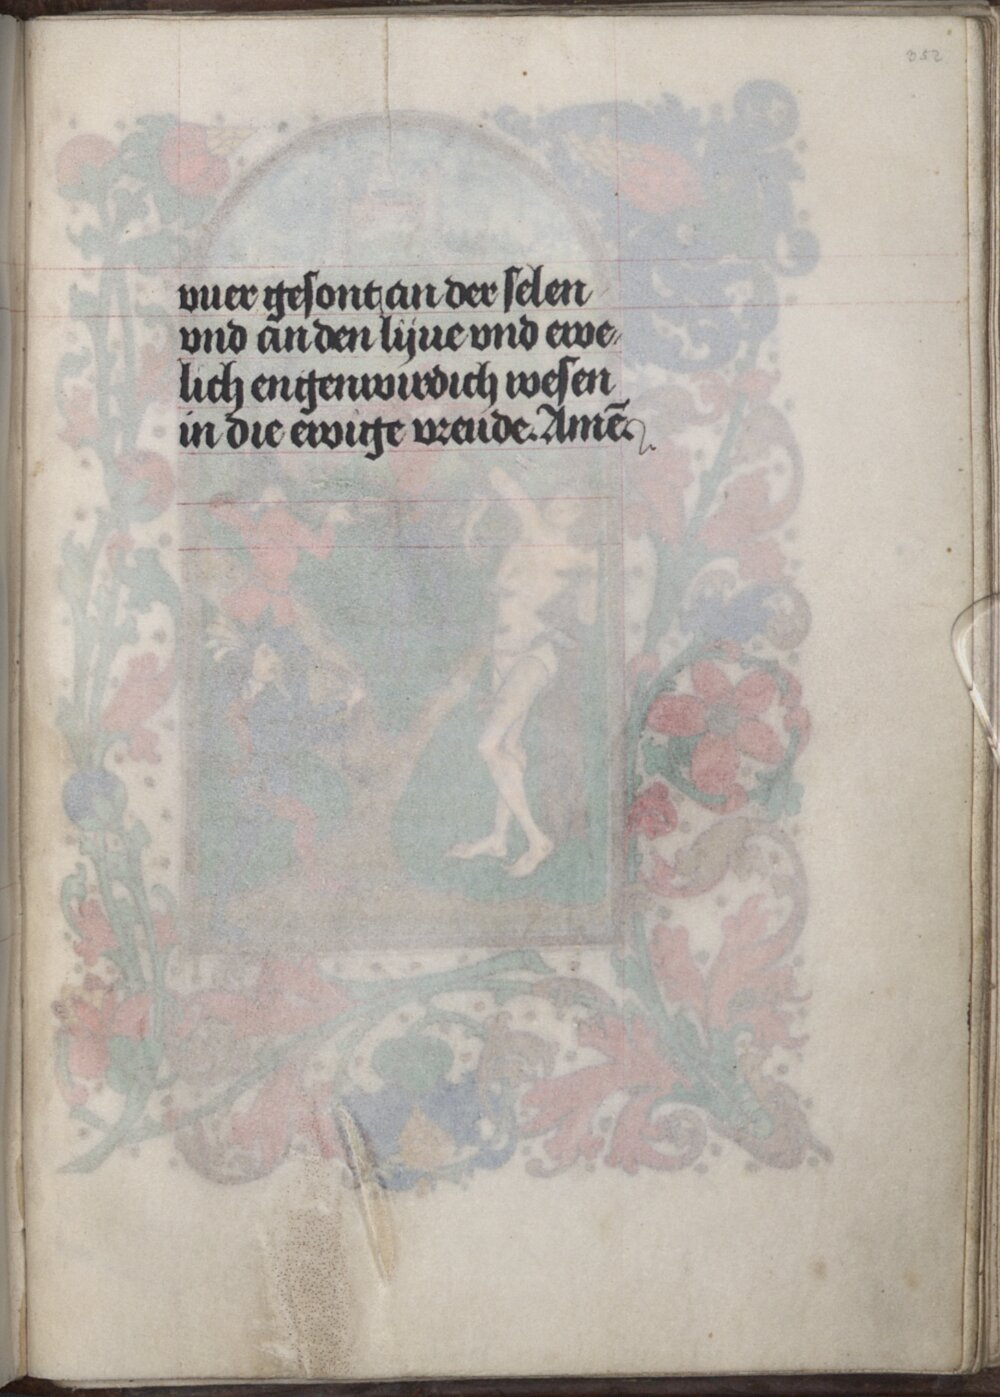 352
vuer gesont an der selen
vnd an den lijue vnd ewe-
lich engenwirdich wesen
in die ewige vreude. Amē.